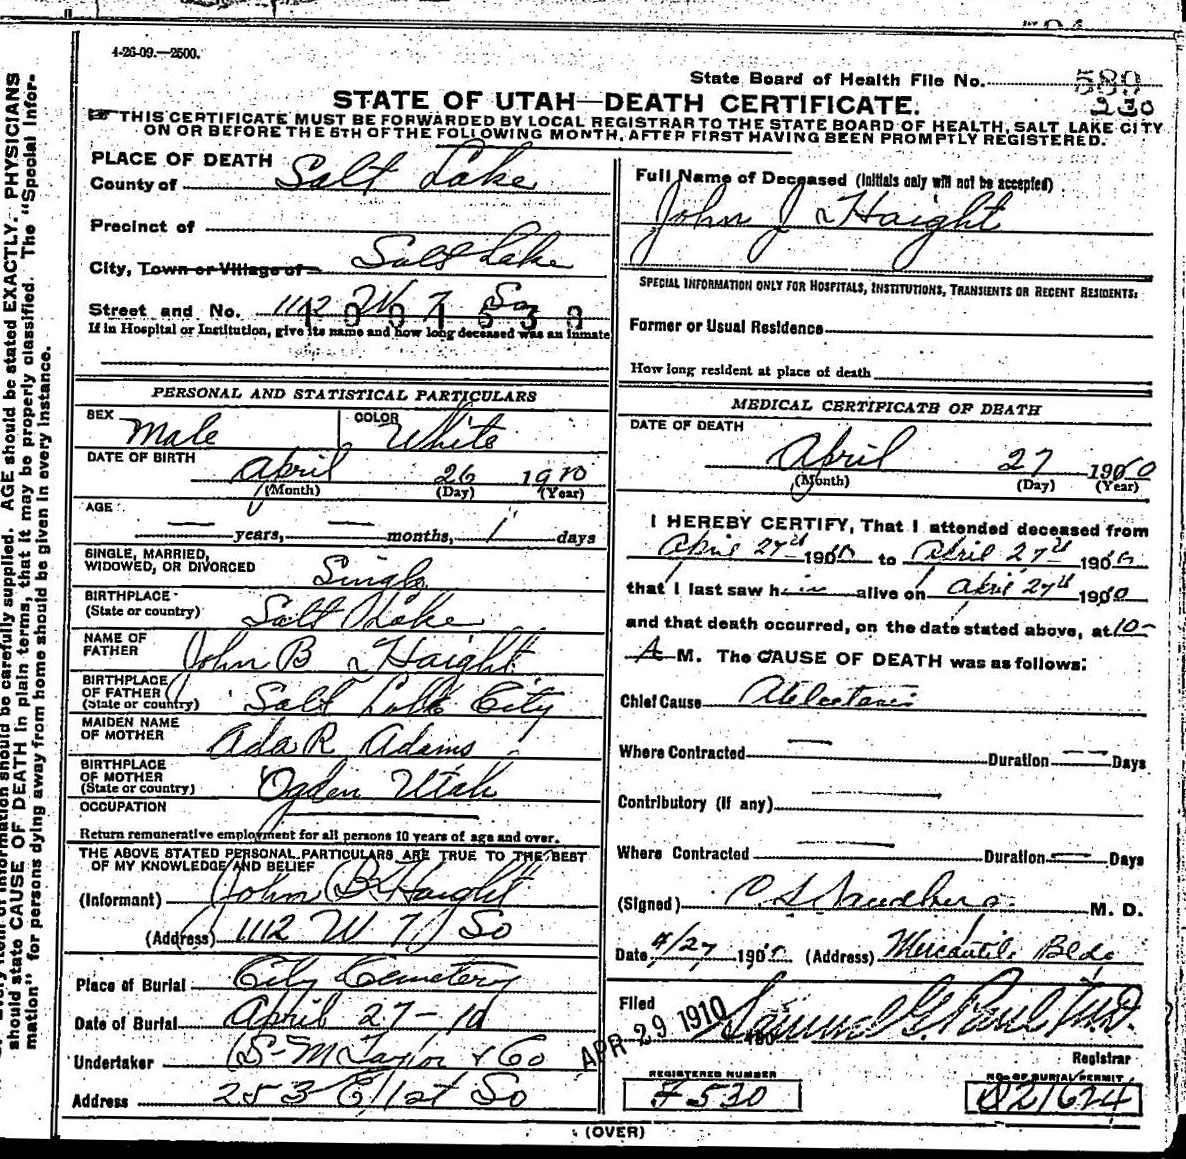 4-26-09.—2500.
State Board of Health File No. 580
230
STATE OF UTAH—DEATH CERTIFICATE.
THIS CERTIFICATE MUST BE FORWARDED BY LOCAL REGISTRAR TO THE STATE BOARD OF HEALTH, SALT LAKE CITY
ON OR BEFORE THE 5TH OF THE FOLLOWING MONTH, AFTER FIRST HAVING BEEN PROMPTLY REGISTERED.
PLACE OF DEATH
County of Salt Lake
Precinct of
City, Town or Village of Salt Lake
Street and No. 1112 W 7 So
If in Hospital or Institution, give its name and how long deceased was an inmate
PERSONAL AND STATISTICAL PARTICULARS
SEX Male COLOR White
DATE OF BIRTH April 26 1910
(Month) (Day) (Year)
AGE
— years, — months, 1 days
SINGLE, MARRIED,
WIDOWED, OR DIVORCED Single
BIRTHPLACE
(State or country) Salt Lake
NAME OF
FATHER John B Haight
BIRTHPLACE
OF FATHER
(State or country) Salt Lake City
MAIDEN NAME
OF MOTHER Ada R Adams
BIRTHPLACE
OF MOTHER
(State or country) Ogden Utah
OCCUPATION
Return remunerative employment for all persons 10 years of age and over.
THE ABOVE STATED PERSONAL PARTICULARS ARE TRUE TO THE BEST
OF MY KNOWLEDGE AND BELIEF
(Informant) John B Haight
(Address) 1112 W 7 So
Place of Burial City Cemetery
Date of Burial April 27-10
Undertaker S-M Taylor & Co
Address 253 E 1st So
Full Name of Deceased (Initials only will not be accepted)
John J Haight
SPECIAL INFORMATION ONLY FOR HOSPITALS, INSTITUTIONS, TRANSIENTS OR RECENT RESIDENTS:
Former or Usual Residence
How long resident at place of death
MEDICAL CERTIFICATE OF DEATH
DATE OF DEATH
April 27 1910
(Month) (Day) (Year)
I HEREBY CERTIFY, That I attended deceased from
April 27th 1910 to April 27th 1910
that I last saw him alive on April 27th 1910
and that death occurred, on the date stated above, at 10-
A M. The CAUSE OF DEATH was as follows:
Chief Cause Atelectasis
Where Contracted — Duration — Days
Contributory (if any)
Where Contracted — Duration — Days
(Signed) M. D.
Date 4/27 1910 (Address) Mercantile Bldg
Filed APR 29 1910 Samuel G. Paul M.D.
Registrar
REGISTERED NUMBER
NO. OF BURIAL PERMIT
F530
D21624
(OVER)
should be carefully supplied. AGE should be stated EXACTLY. PHYSICIANS
should state CAUSE OF DEATH in plain terms, that it may be properly classified. The "Special Infor-
mation" for persons dying away from home should be given in every instance.